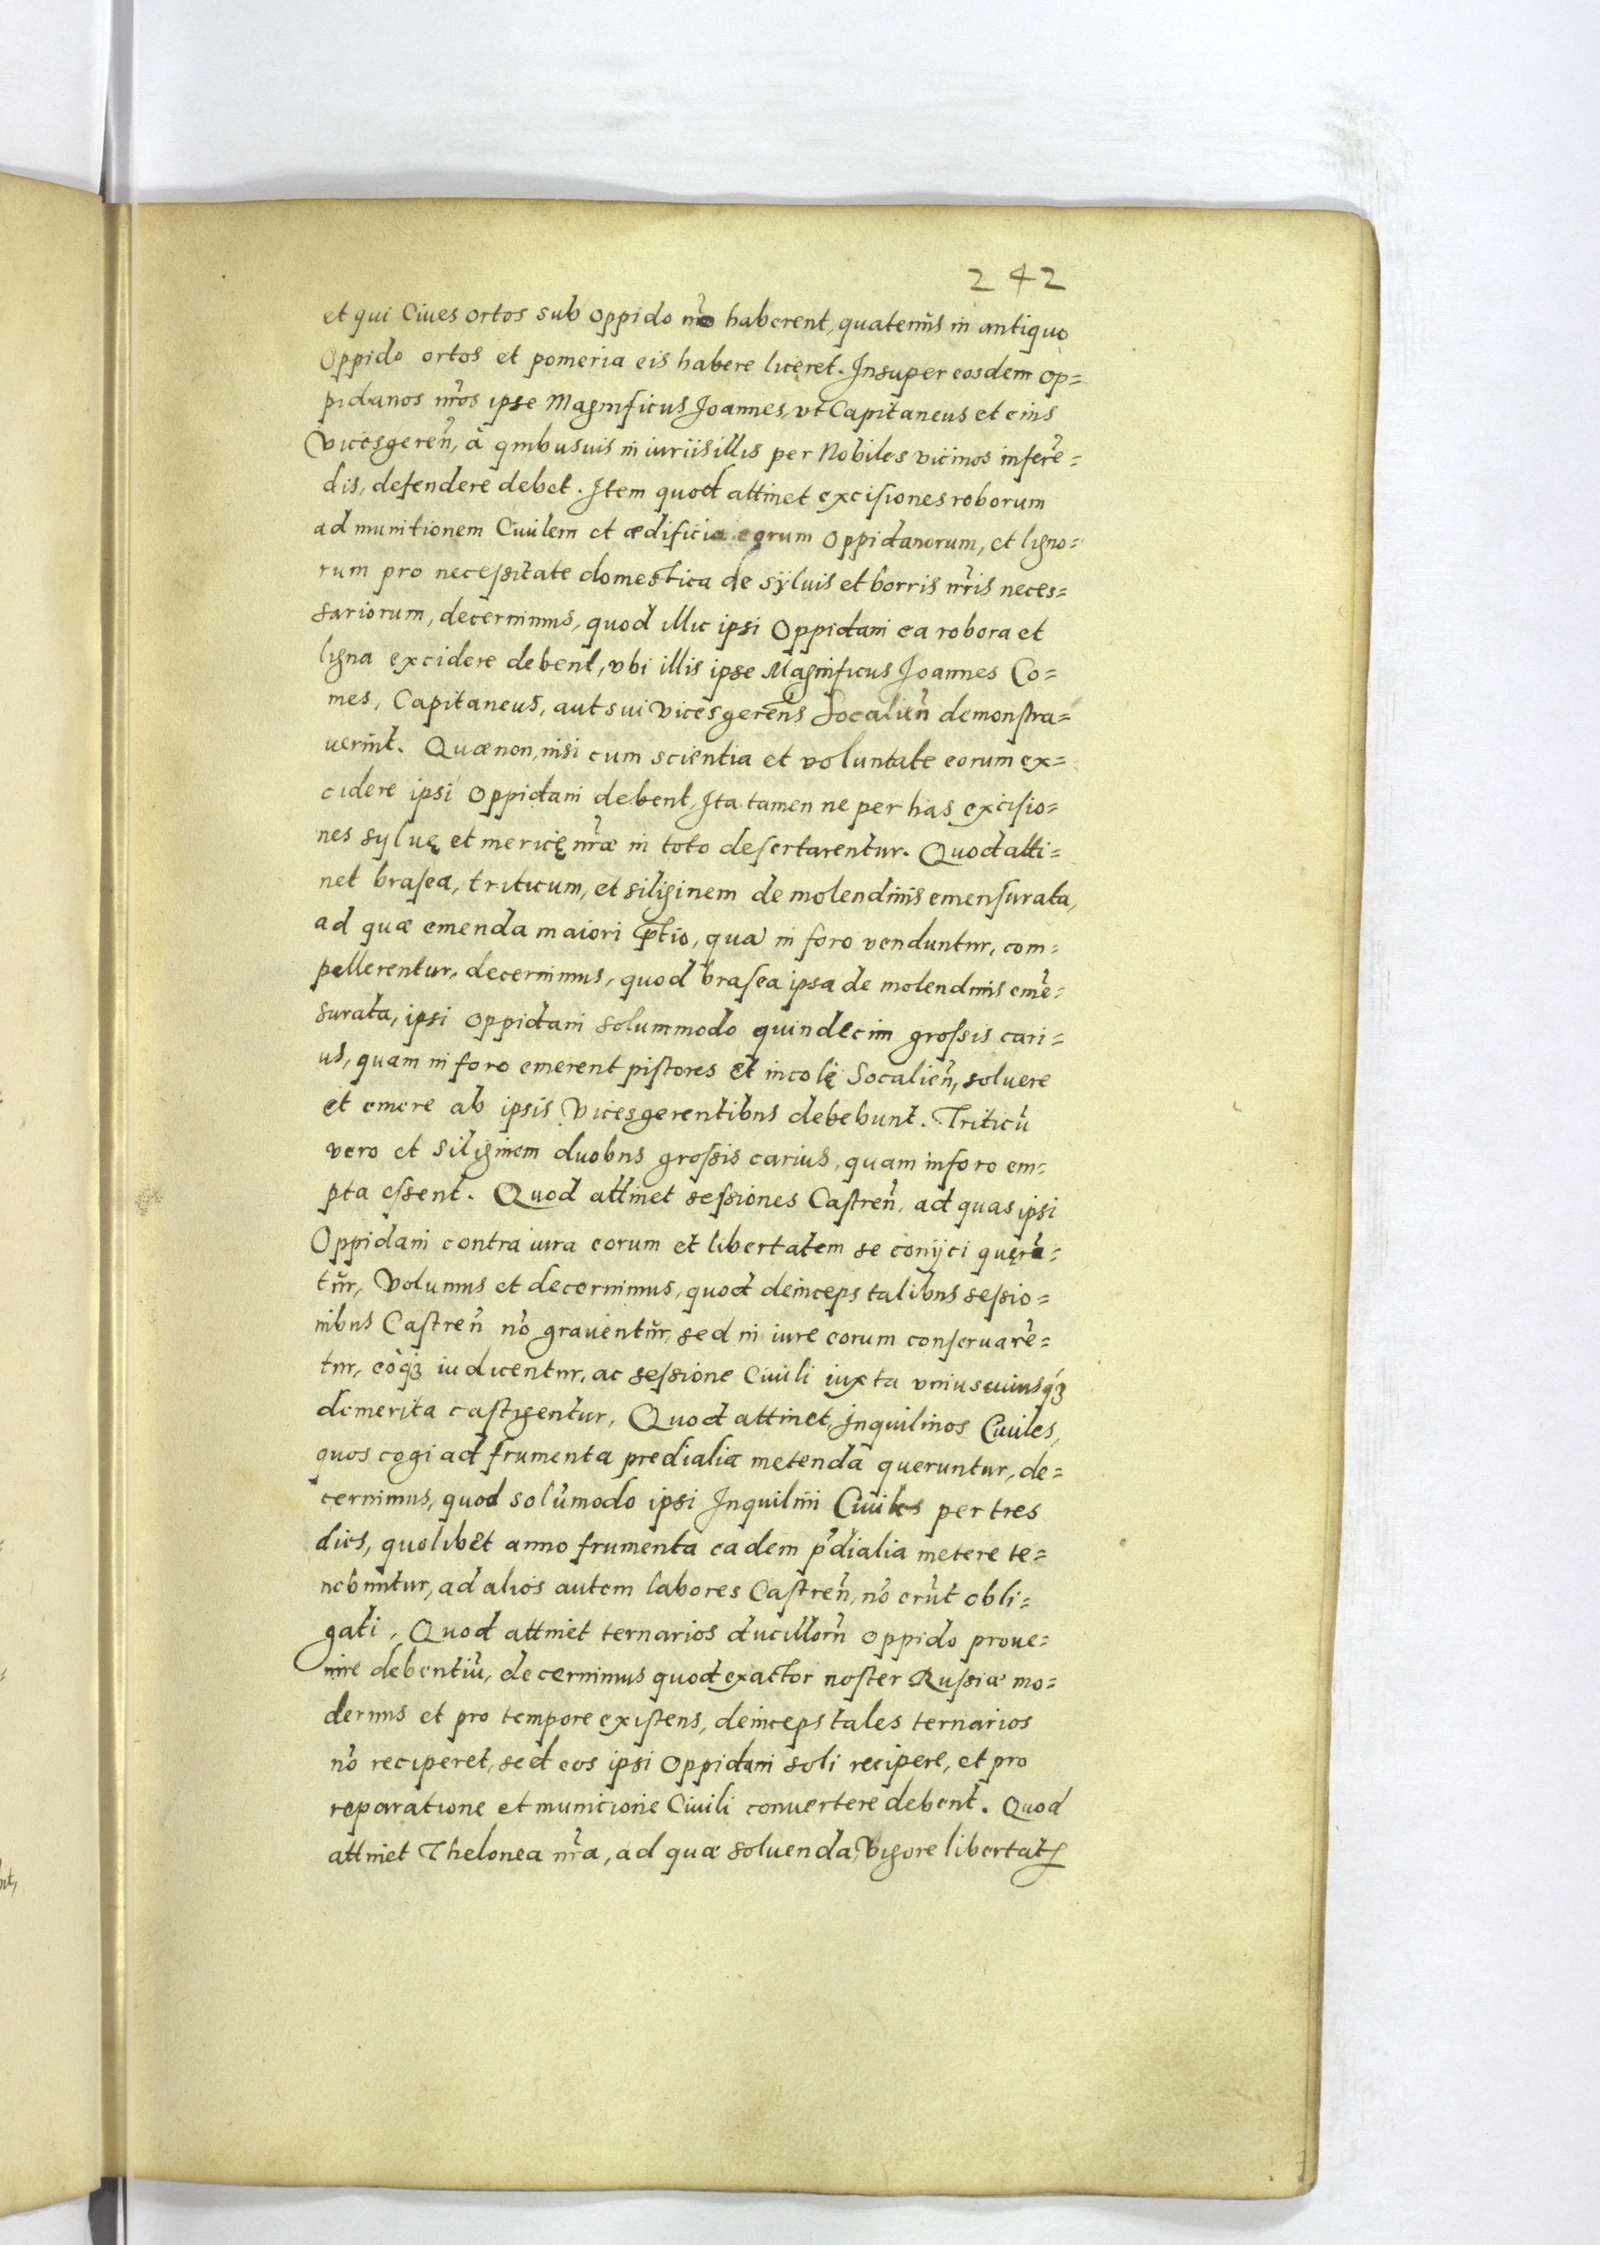 242
et qui Ciues ortos sub oppido nr̃o haberent, quaten̄s in antiquo
Oppido ortos et pomeria eis habere liceret. Insuper eosdem op=
pidanos nr̃os ipse Magnificus Joannes, vt Capitaneus et eius
Vicesgereñ, à quibusuis iniuriis illis per Nobiles vicinos inferẽ=
dis, defendere debet. Item quod attinet excisiones roborum
ad munitionem Ciuilem et ædificia eorum Oppidanorum, et ligno=
rum pro necessitate domestica de syluis et borris nr̃is neces=
sariorum, decernimus, quod illic ipsi Oppidani ea robora et
ligna excidere debent, vbi illis ipse Magnificus Joannes Co=
mes, Capitaneus, aut sui vicesgerens Socalieñ demonstra=
uerint. Quæ non, nisi cum scientia et voluntate eorum ex=
cidere ipsi Oppidani debent, Ita tamen ne per has excisio=
nes syluę et mericę nr̃æ in toto desertarentur. Quod atti=
net brasea, triticum, et siliginem de molendinis emensurata,
ad quæ emenda maiori p̃tio, quã in foro venduntur, com=
pellerentur, decernimus, quod brasea ipsa de molendinis emẽ=
surata, ipsi Oppidani solummodo quindecim grossis cari=
us, quam in foro emerent pistores et incolę Socalieñ, soluere
et emere ab ipsis Vicesgerentibus debebunt. Triticũ
vero et siliginem duobus grossis carius, quam in foro em=
pta essent. Quod attinet sessiones Castreñ, ad quas ipsi
Oppidani contra iura eorum et libertatem se conijci querũ=
tur, Volumus et decernimus, quod deinceps talibus sessio=
nibus Castreñ nõ grauentur, sed in iure eorum conseruarẽ=
tur, eòq́ʒ iudicentur, ac sessione Ciuili iuxta vniuscuiusq́ʒ
demerita castigentur. Quod attinet, Inquilinos Ciuiles,
quos cogi ad frumenta predialia metenda queruntur, de=
cernimus, quod solũmodo ipsi Inquilini Ciuiles per tres
dies, quolibet anno frumenta eadem p̃dialia metere te=
nebuntur, ad alios autem labores Castreñ, nõ erũt obli=
gati. Quod attinet ternarios ducillorũ oppido proue=
nire debentiũ, decernimus quod exactor noster Russiæ mo=
dernus et pro tempore existens, deinceps tales ternarios
nõ reciperet, sed eos ipsi Oppidani soli recipere, et pro
reparatione et municione Ciuili conuertere debent. Quod
attinet Thelonea nr̃a, ad quæ soluenda, Vigore libertatꝭ